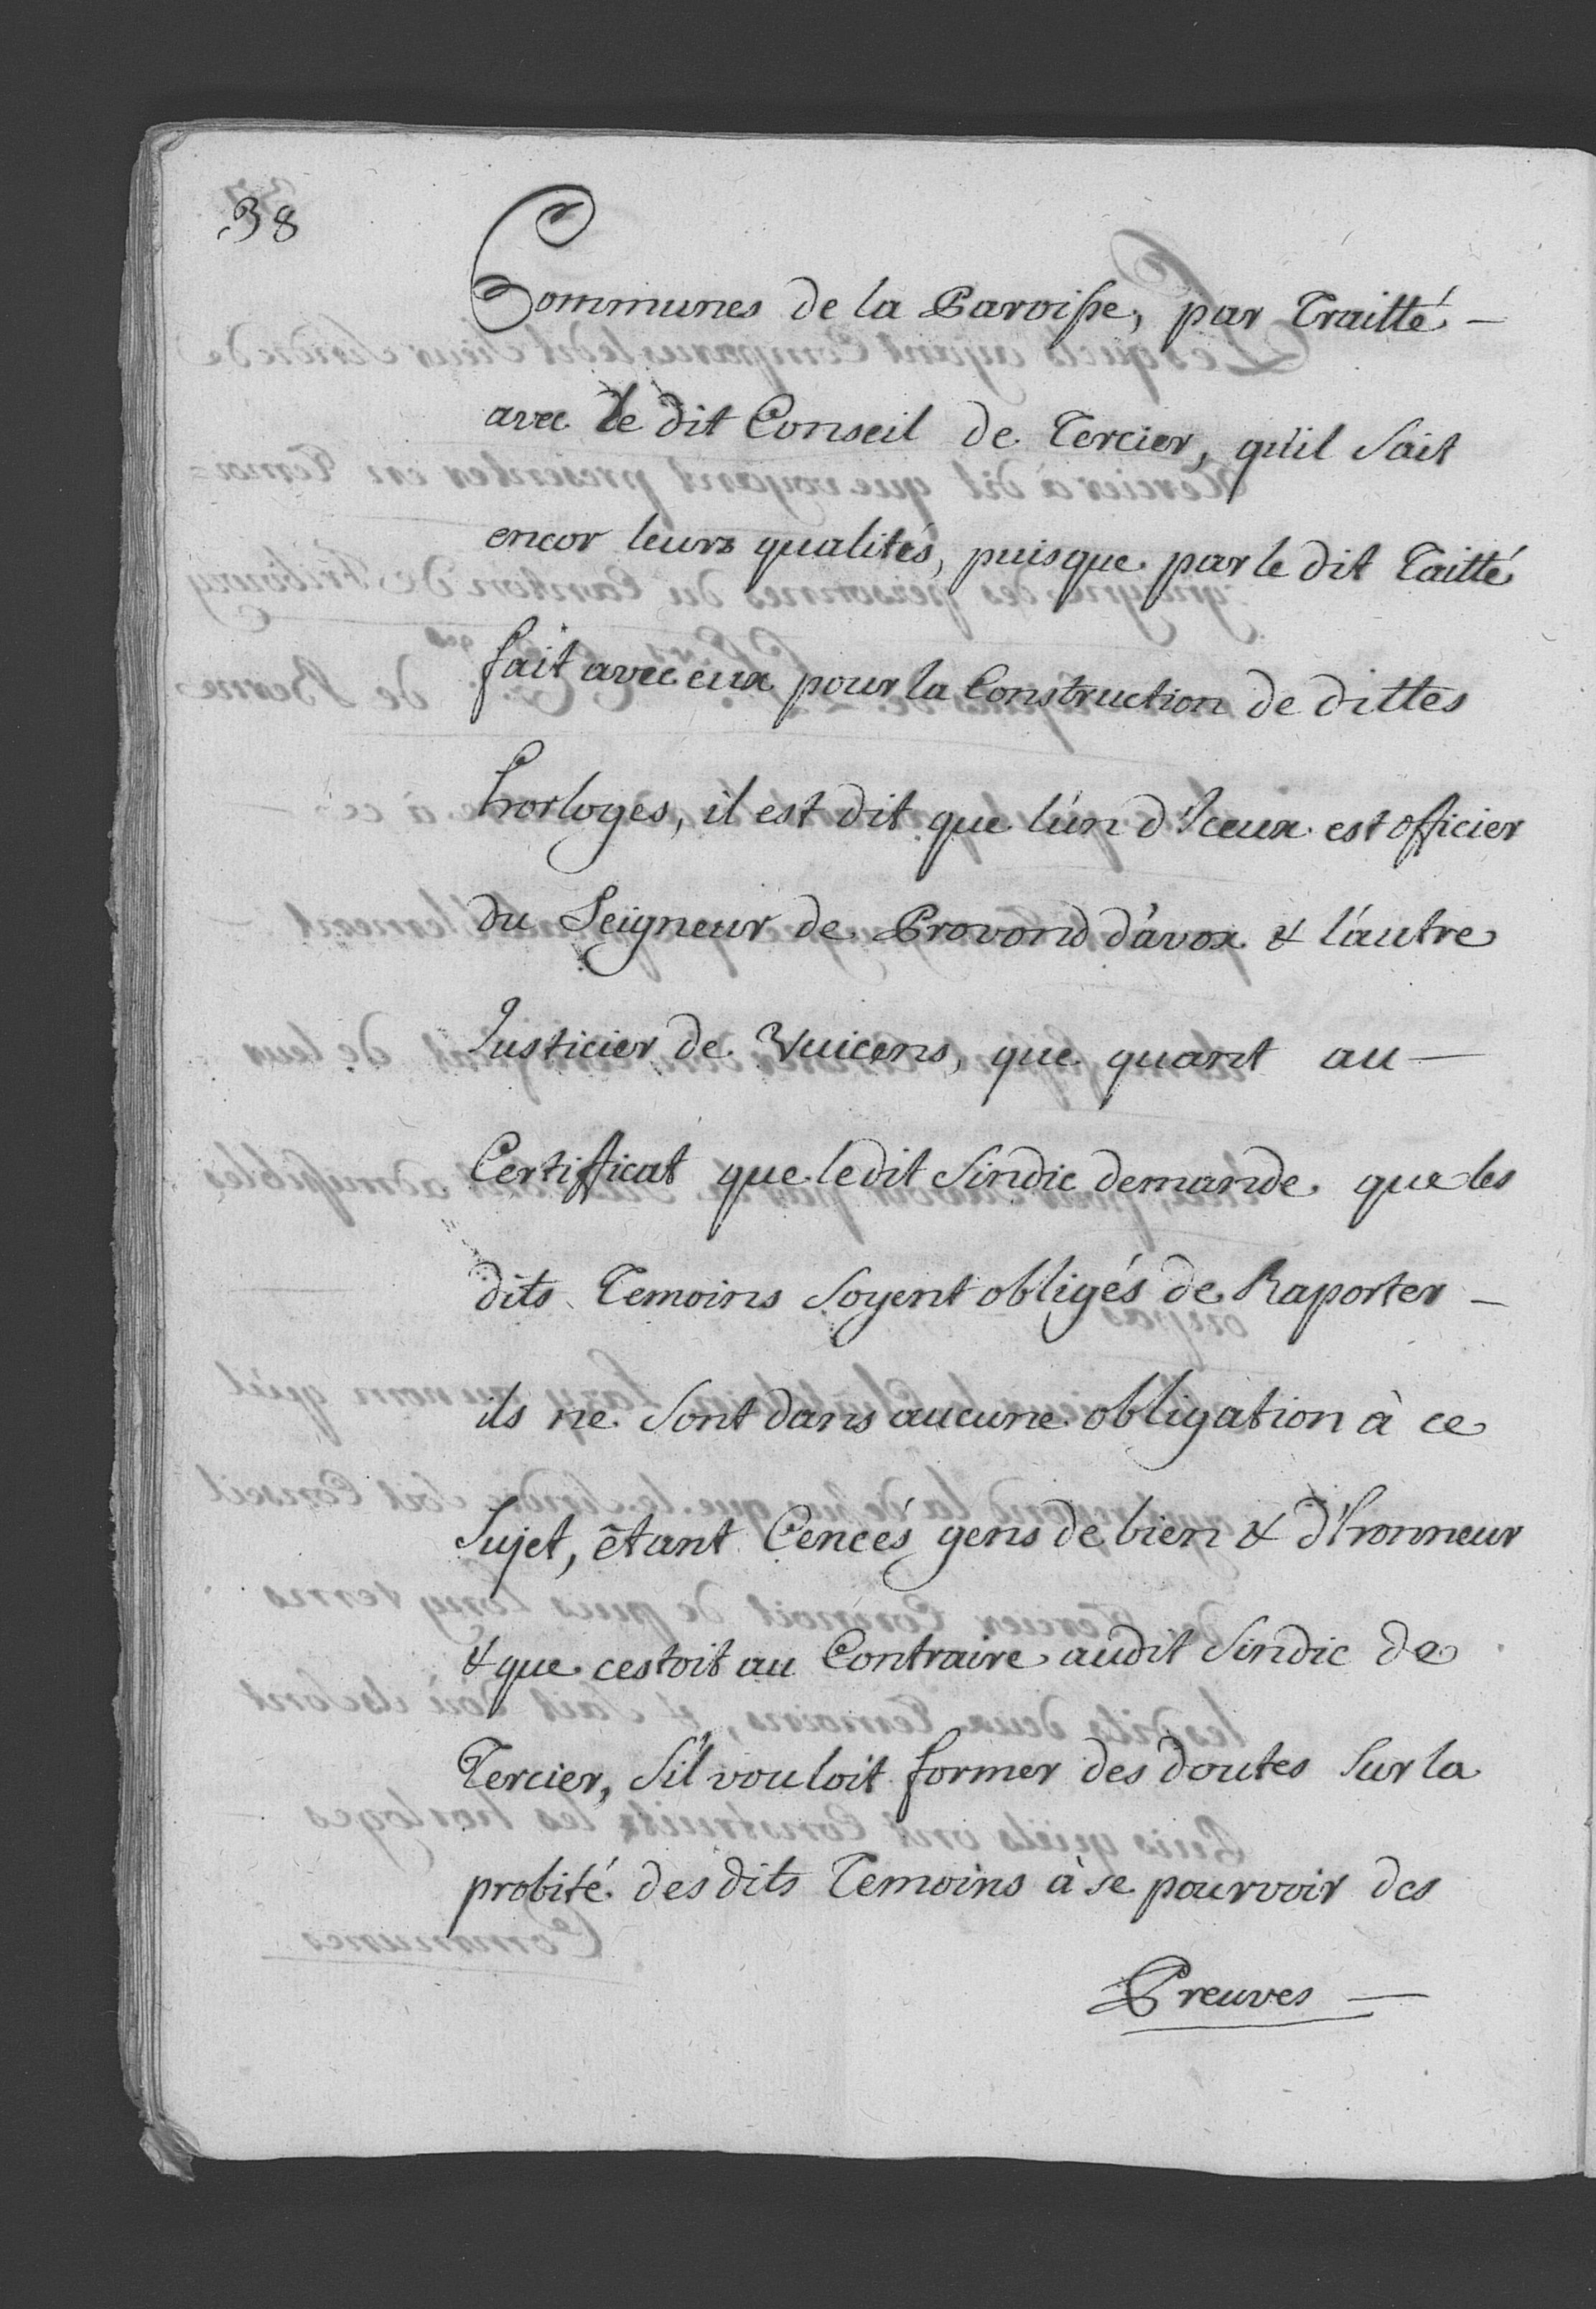 38
Communes de la Paroisse, par Traitté —
avec le dit Conseil de Tercier, qu'il Sait
encor leurs qualités, puisque par le dit Taitté
fait avec eux pour la Construction de dittes
horloges, il est dit que l'un d'Iceux est officier
du Seigneur de Provond d'avox & l'autre
Justicier de Vuicens, que quant au —
Certifficat que ledit Sindic demande que les
dits Temoins Soyent obligés de Raporter —
ils ne Sont dans aucune obligation à ce
Sujet, étant Cencés gens de bien & d'honneur
& que cestoit au Contraire audit Sindic de
Tercier, S'il vouloit former des doutes Sur la
probité des dits Temoins à se pourvoir des
Preuves —